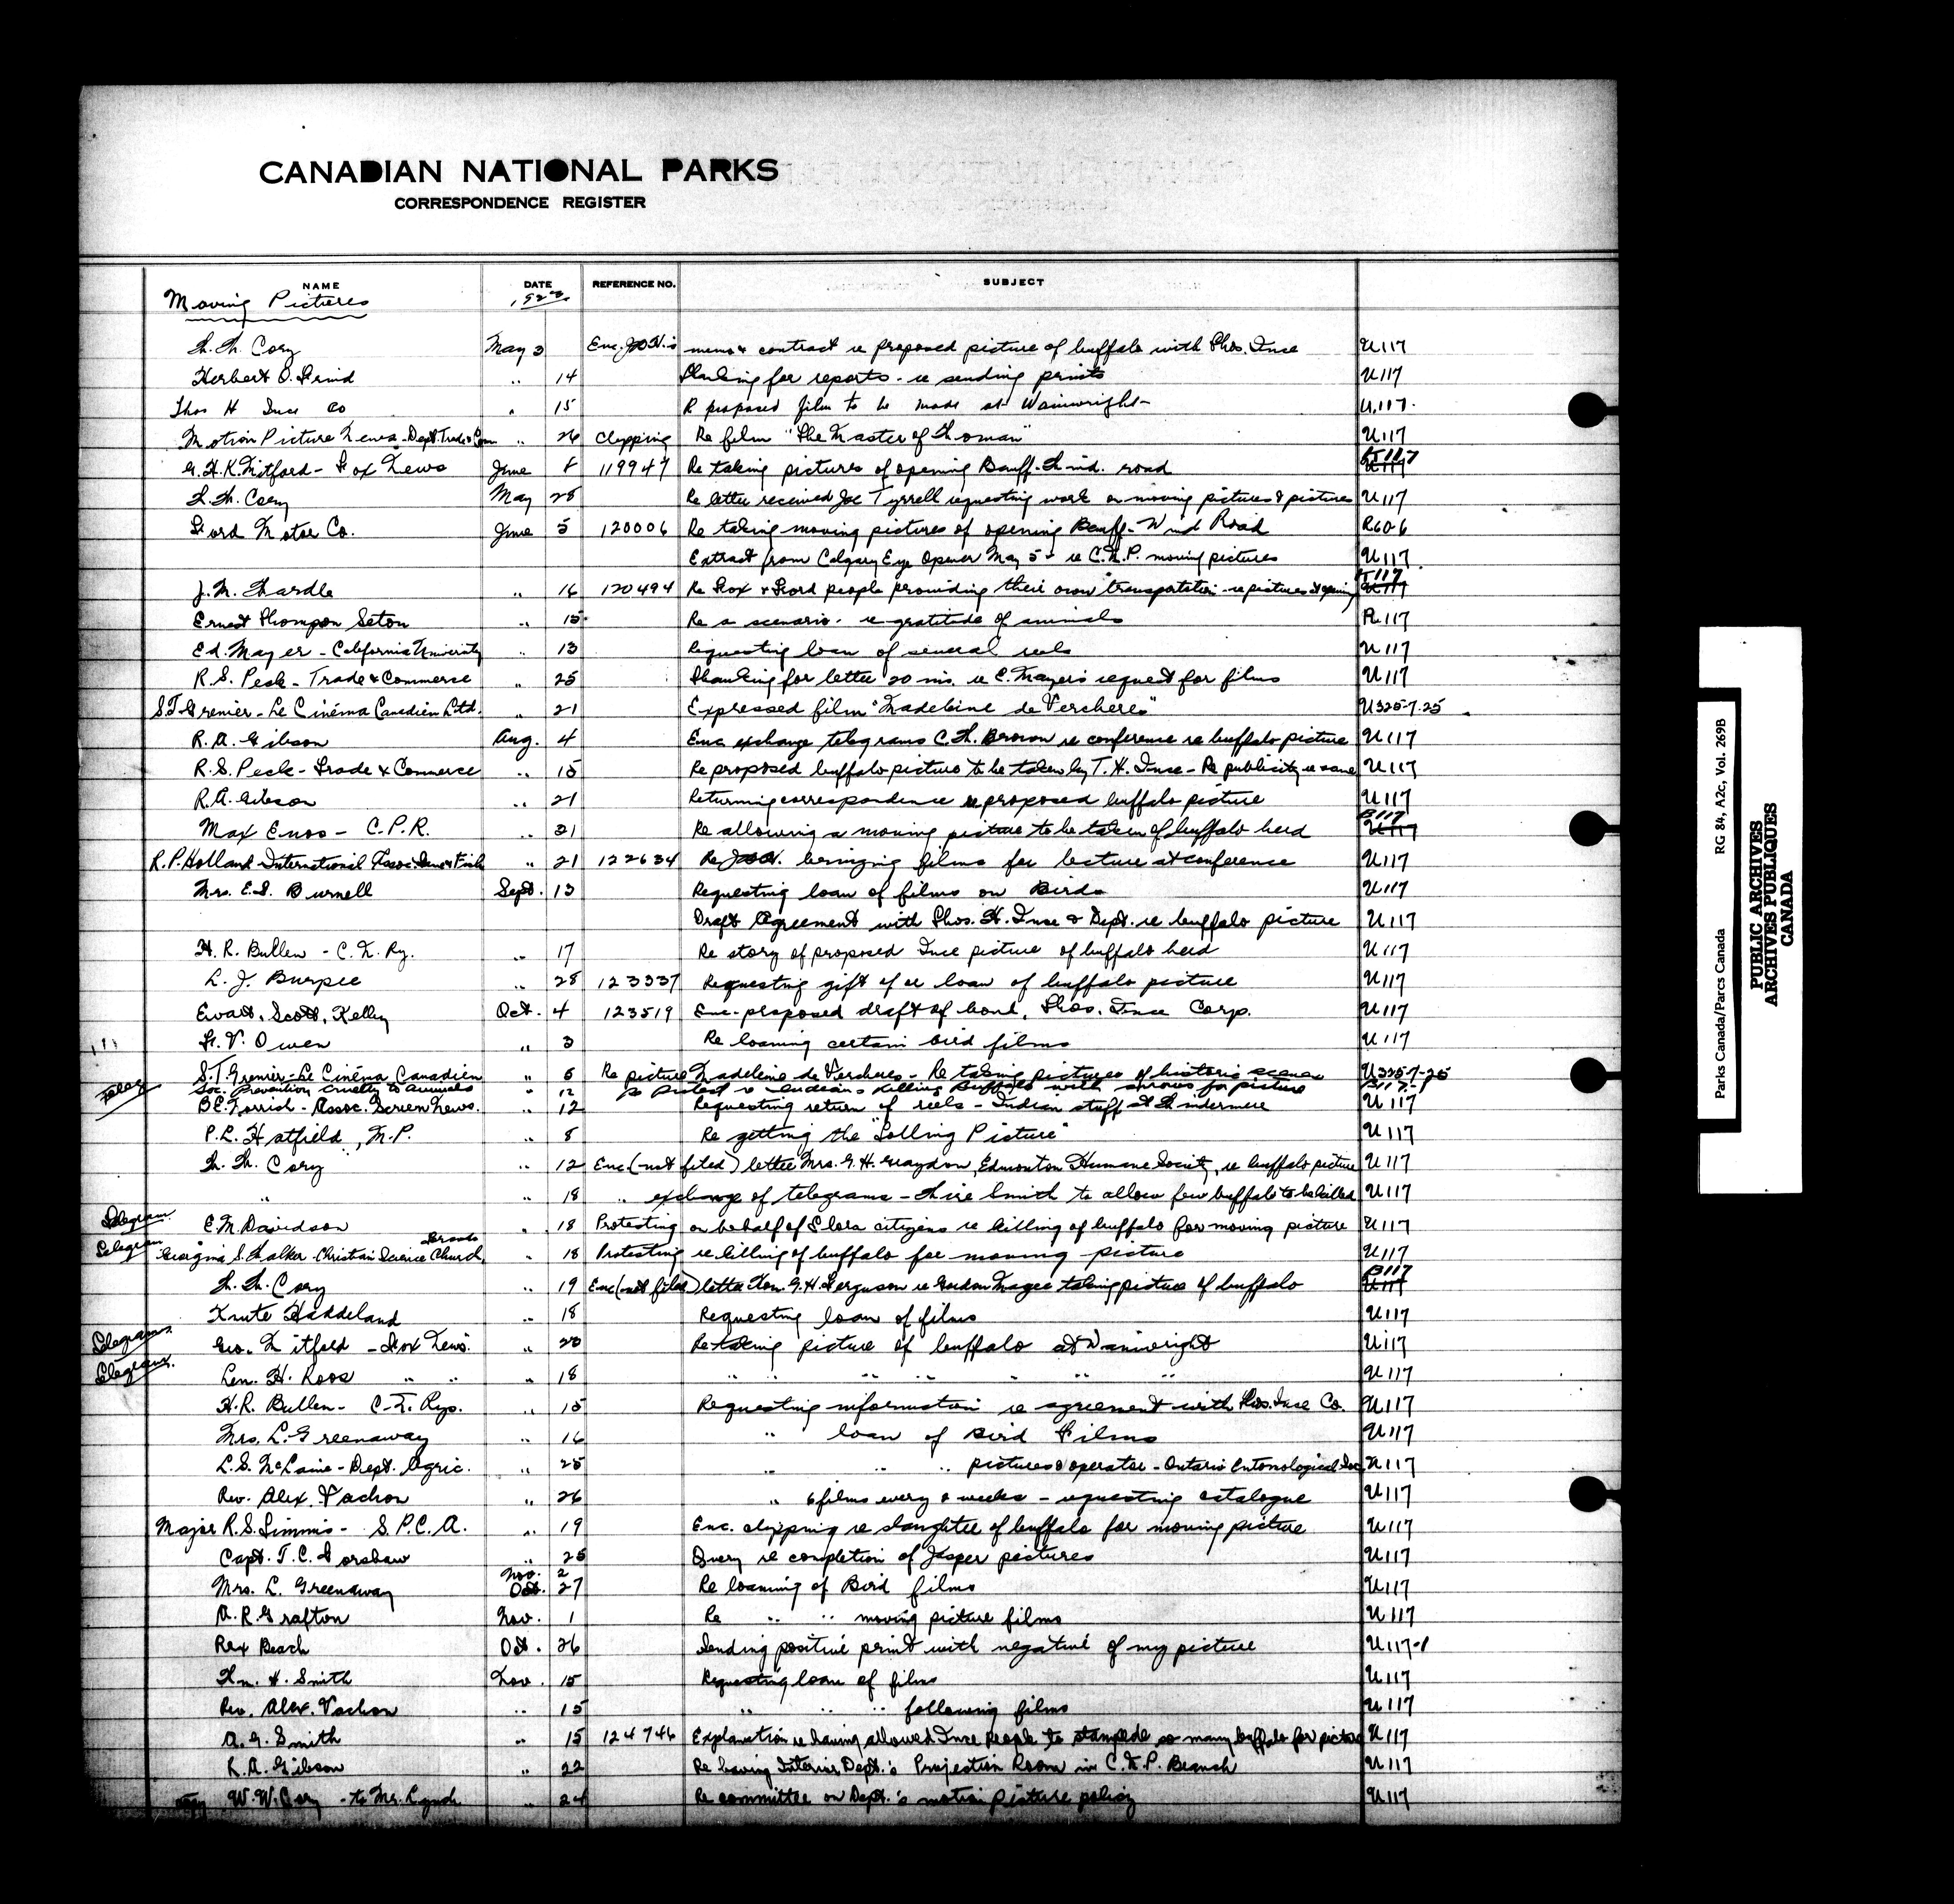 CANADIAN NATIONAL PARKS
CORRESPONDENCE REGISTER
NAME DATE REFERENCE NO. SUBJECT
Moving Pictures 1923
W. W. Cory May 3 Enc. memo & contract re proposed picture of buffalo with Thos. Ince U117
Herbert O. " 14 Thanking for reports - re sending prints U117
Thos H Ince Co " 15 R proposed film to be made at Wainwright U.117.
Motion Picture News - Dept. Trade & Com " 26 Clipping Re film "The Master of Woman" U117
G.H.K. Mitford - Fox News June 8 119947 Re taking pictures of opening Banff-Wind. road U117
W. W. Cory May 28 Re letter received Joe Tyrrell requesting work on moving pictures & pictures U117
Ford Motor Co. June 5 120006 Re taking moving pictures of opening Banff-Wind Road R60-6
Extract from Calgary Eye Opener May 5 - re C.N.P. moving pictures U117
J. M. Wardle " 16 120494 Re Fox & Ford people providing their own transportation - re pictures U117
Ernest Thompson Seton " 15 Re a scenario - re gratitude of animals R.117
Ed. Mayer - California University " 13 Requesting loan of several reels U117
R. S. Peck - Trade & Commerce " 25 Thanking for letter 20 ins. re E. Mayer's request for films U117
S.T. Grenier - Le Cinéma Canadien Ltd. " 21 Expressed film "Madeleine de Vercheres" U325-7-25
R. A. Gibson Aug. 4 Enc. exchange telegrams C. H. Brown re conference re buffalo picture U117
R. S. Peck - Trade & Commerce " 15 Re proposed buffalo picture to be taken by T. H. Ince - Re publicity re same U117
R. A. Gibson " 21 Returning correspondence re proposed buffalo picture U117
Max Enos - C.P.R. " 21 Re allowing a moving picture to be taken of buffalo herd B117 U117
R.P. Holland International Assoc. Game & Fish " 21 122634 Re bringing films for lecture at conference U117
Mrs. E. S. Burnell Sept. 13 Requesting loan of films on Birds U117
Draft Agreement with Thos. H. Ince & Dept. re buffalo picture U117
H. R. Bullen - C. N. Ry. " 17 Re story of proposed Ince picture of buffalo herd U117
L. J. Burpee " 28 123337 Requesting gift of or loan of buffalo picture U117
Ewart, Scott, Kelley Oct. 4 123519 Enc. proposed draft of bond, Thos. Ince Corp. U117
F. V. Owen " 3 Re loaning certain bird films U117
S.T. Grenier - Le Cinéma Canadien " 6 Re picture Madeleine de Vercheres - Re taking pictures of historic scenes U325-7-25
Soc. Prevention cruelty to animals " 12 protest re Indians killing Buffalo with arrows for picture B117-1
B.E. Norrish - Assoc. Screen News. " 12 Requesting return of reels - Indian stuff at Windermere U117
P. L. Hatfield, M.P. " 8 Re getting the "Lolling Picture" U117
W. W. Cory " 12 Enc. (not filed) letter Mrs. G. H. Graydon, Edmonton Humane Society, re buffalo picture U117
" " 18 " exchange of telegrams - Wire Smith to allow few buffalo to be killed U117
Telegram. E. M. Davidson " 18 Protesting on behalf of citizens re killing of buffalo for moving picture U117
Telegram Georgina S. Walker - Christian Science Church, " 18 Protesting re killing of buffalo for moving picture U117
W. W. Cory " 19 Enc. (not filed) letter Hon. G. H. Ferguson re Gordon Magee taking picture of buffalo B117 U117
Knute Haddeland " 18 Requesting loan of films U117
Telegram. Geo. Mitford - Fox News. " 20 Re taking picture of buffalo at Wainwright U117
Telegram. Len. H. Roos " " " 18 " " " " " " " U117
H. R. Bullen - C. N. Rys. " 15 Requesting information re agreement with Thos. Ince Co. U117
Mrs. L. Greenaway " 16 " loan of Bird Films U117
L. S. McLaine - Dept. Agric. " 25 " " " pictures & operator - Ontario Entomological Soc. U117
Rev. Alex. Vachon " 26 " 6 films every 2 weeks - requesting catalogue U117
Major R. S. Timmis - S. P. C. A. " 19 Enc. clipping re slaughter of buffalo for moving picture U117
Capt. T. C. " 25 Query re completion of Jasper pictures U117
Nov. 2
Mrs. L. Greenaway Oct. 27 Re loaning of Bird films U117
A. R. Grafton Nov. 1 Re " " moving picture films U117
Rex Beach Oct. 26 Sending positive print with negative of my picture U117-1
Wm. H. Smith Nov. 15 Requesting loan of films U117
Rev. Alex. Vachon " 15 " " " following films U117
A. G. Smith " 15 124746 Explanation re having allowed Ince people to stampede so many buffalo for picture U117
R. A. Gibson " 22 Re having Interior Dept.'s Projection Room in C.N.P. Branch U117
W. W. Cory - to Mr. Lynch " 24 Re committee on Dept.'s motion picture policy U117
Parks Canada/Parcs Canada RG 84, A2c, Vol. 269B
PUBLIC ARCHIVES
ARCHIVES PUBLIQUES
CANADA